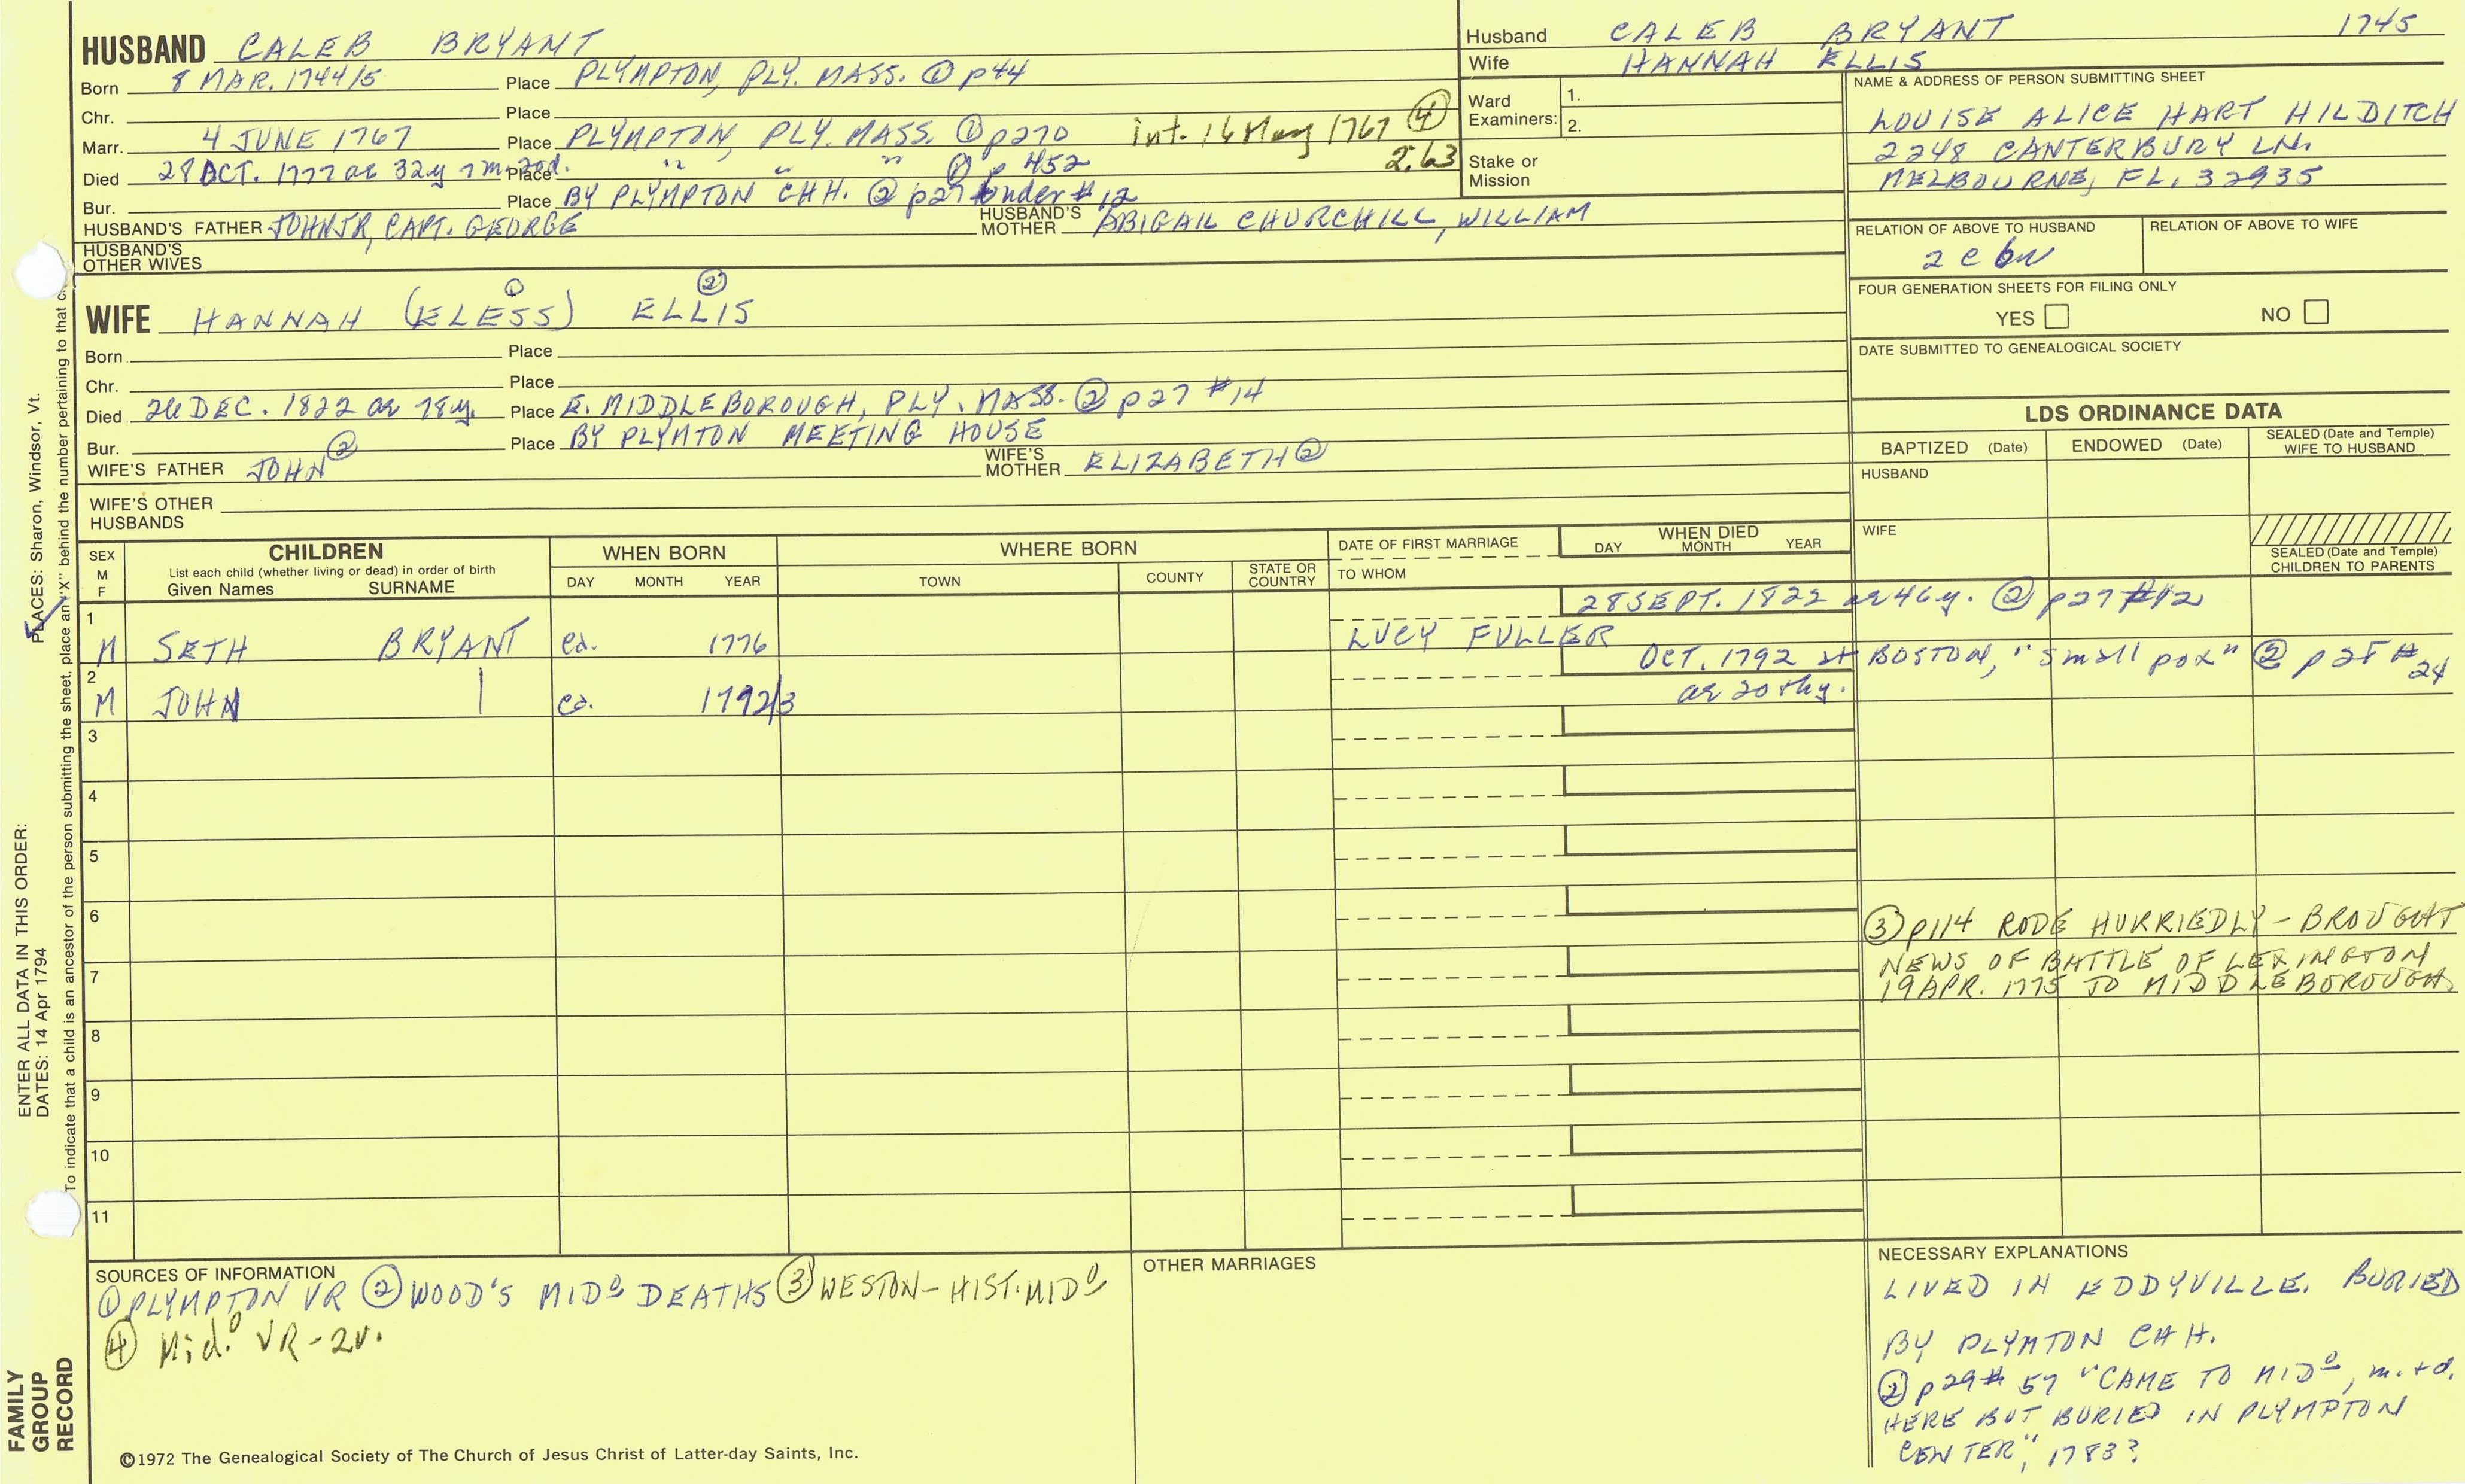 HUSBAND CALEB BRYANT
Born 8 MAR. 1744/5 Place PLYMPTON, PLY. MASS. ① p44
Chr. Place
Marr. 4 JUNE 1767 Place PLYMPTON, PLY. MASS. ① p270 int. 16 May 1767 ④ 2:63
Died 28 OCT. 1777 ae 32y 7m. 20d. Place " " " ① p 452
Bur. Place BY PLYMPTON CH H. ② p27 under #12
HUSBAND'S FATHER JOHN JR, CAPT. GEORGE HUSBAND'S MOTHER ABIGAIL CHURCHILL, WILLIAM
HUSBAND'S OTHER WIVES
WIFE HANNAH (ELESS) ① ELLIS ②
Born Place
Chr. Place
Died 26 DEC. 1822 ae 78y. Place E. MIDDLEBOROUGH, PLY. MASS. ② p27 #14
Bur. Place BY PLYMTON MEETING HOUSE
WIFE'S FATHER JOHN ② WIFE'S MOTHER ELIZABETH ②
WIFE'S OTHER HUSBANDS
Husband CALEB BRYANT 1745
Wife HANNAH ELLIS
Ward Examiners: 1.
2.
Stake or Mission
NAME & ADDRESS OF PERSON SUBMITTING SHEET
LOUISE ALICE HART HILDITCH
2248 CANTERBURY LN.
MELBOURNE, FL. 32935
RELATION OF ABOVE TO HUSBAND RELATION OF ABOVE TO WIFE
2 c 6w
FOUR GENERATION SHEETS FOR FILING ONLY
YES NO
DATE SUBMITTED TO GENEALOGICAL SOCIETY
LDS ORDINANCE DATA
BAPTIZED (Date) ENDOWED (Date) SEALED (Date and Temple) WIFE TO HUSBAND
HUSBAND
WIFE
SEALED (Date and Temple) CHILDREN TO PARENTS
SEX M F CHILDREN List each child (whether living or dead) in order of birth Given Names SURNAME
WHEN BORN DAY MONTH YEAR
WHERE BORN TOWN COUNTY STATE OR COUNTRY
DATE OF FIRST MARRIAGE TO WHOM
WHEN DIED DAY MONTH YEAR
1 28 SEPT. 1822 ae 46y. ② p27 #12
M SETH BRYANT ca. 1776 LUCY FULLER
2 OCT. 1792 at BOSTON, "small pox" ② p28 #24
M JOHN | ca. 1792/3 ae 20 thy.
3
4
5
6
7
8
9
10
11
③ p114 RODE HURRIEDLY - BROUGHT
NEWS OF BATTLE OF LEXINGTON
19 APR. 1775 TO MIDDLEBOROUGH
SOURCES OF INFORMATION
① PLYMPTON VR ② WOOD'S MIDº DEATHS ③ WESTON - HIST. MIDº
④ Mid.º VR - 2v.
OTHER MARRIAGES
NECESSARY EXPLANATIONS
LIVED IN EDDYVILLE. BURIED
BY PLYMTON CH H.
② p29 # 57 "CAME TO MIDº, m. + d.
HERE BUT BURIED IN PLYMPTON
CENTER", 1783?
©1972 The Genealogical Society of The Church of Jesus Christ of Latter-day Saints, Inc.
FAMILY
GROUP
RECORD
ENTER ALL DATA IN THIS ORDER:
DATES: 14 Apr 1794 PLACES: Sharon, Windsor, Vt.
To indicate that a child is an ancestor of the person submitting the sheet, place an "X" behind the number pertaining to that c